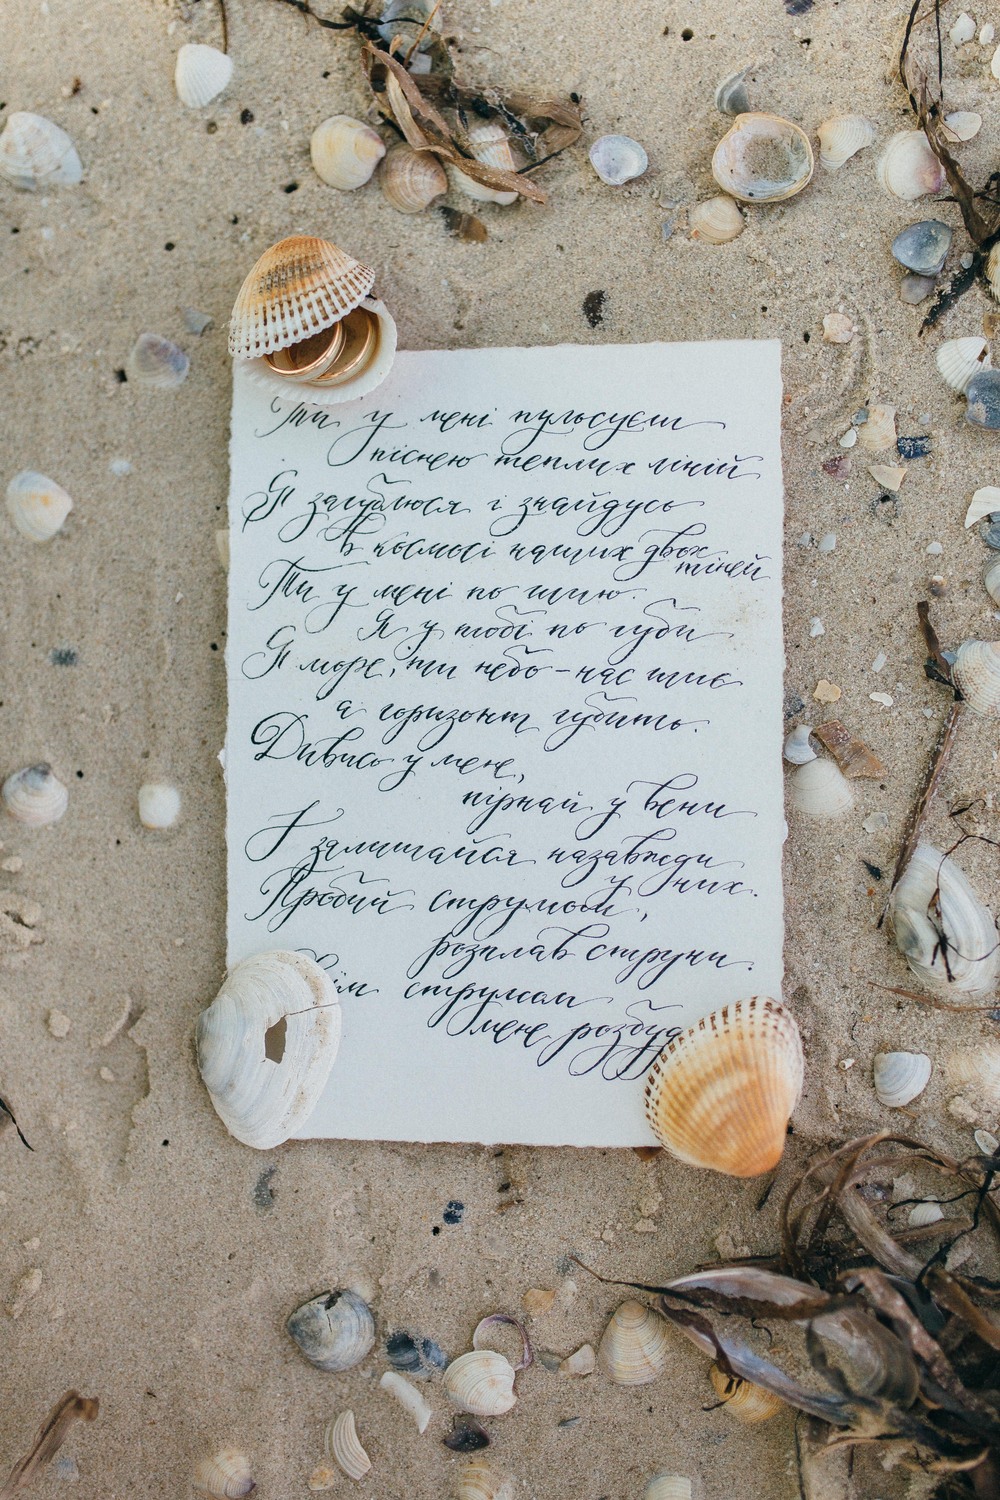 Ти у мені пульсуєш
піснею теплих ліній
Я загублюся і знайдусь
в космосі наших двох
тіней
Ти у мені по шию.
Я у тобі по губи
Я море, ти небо – нас шиє
а горизонт губить.
Дивись у мене,
пірнай у вени
І залишайся назавжди
у них.
Пробий струмом,
розплав струни.
струмом
мене розбуд